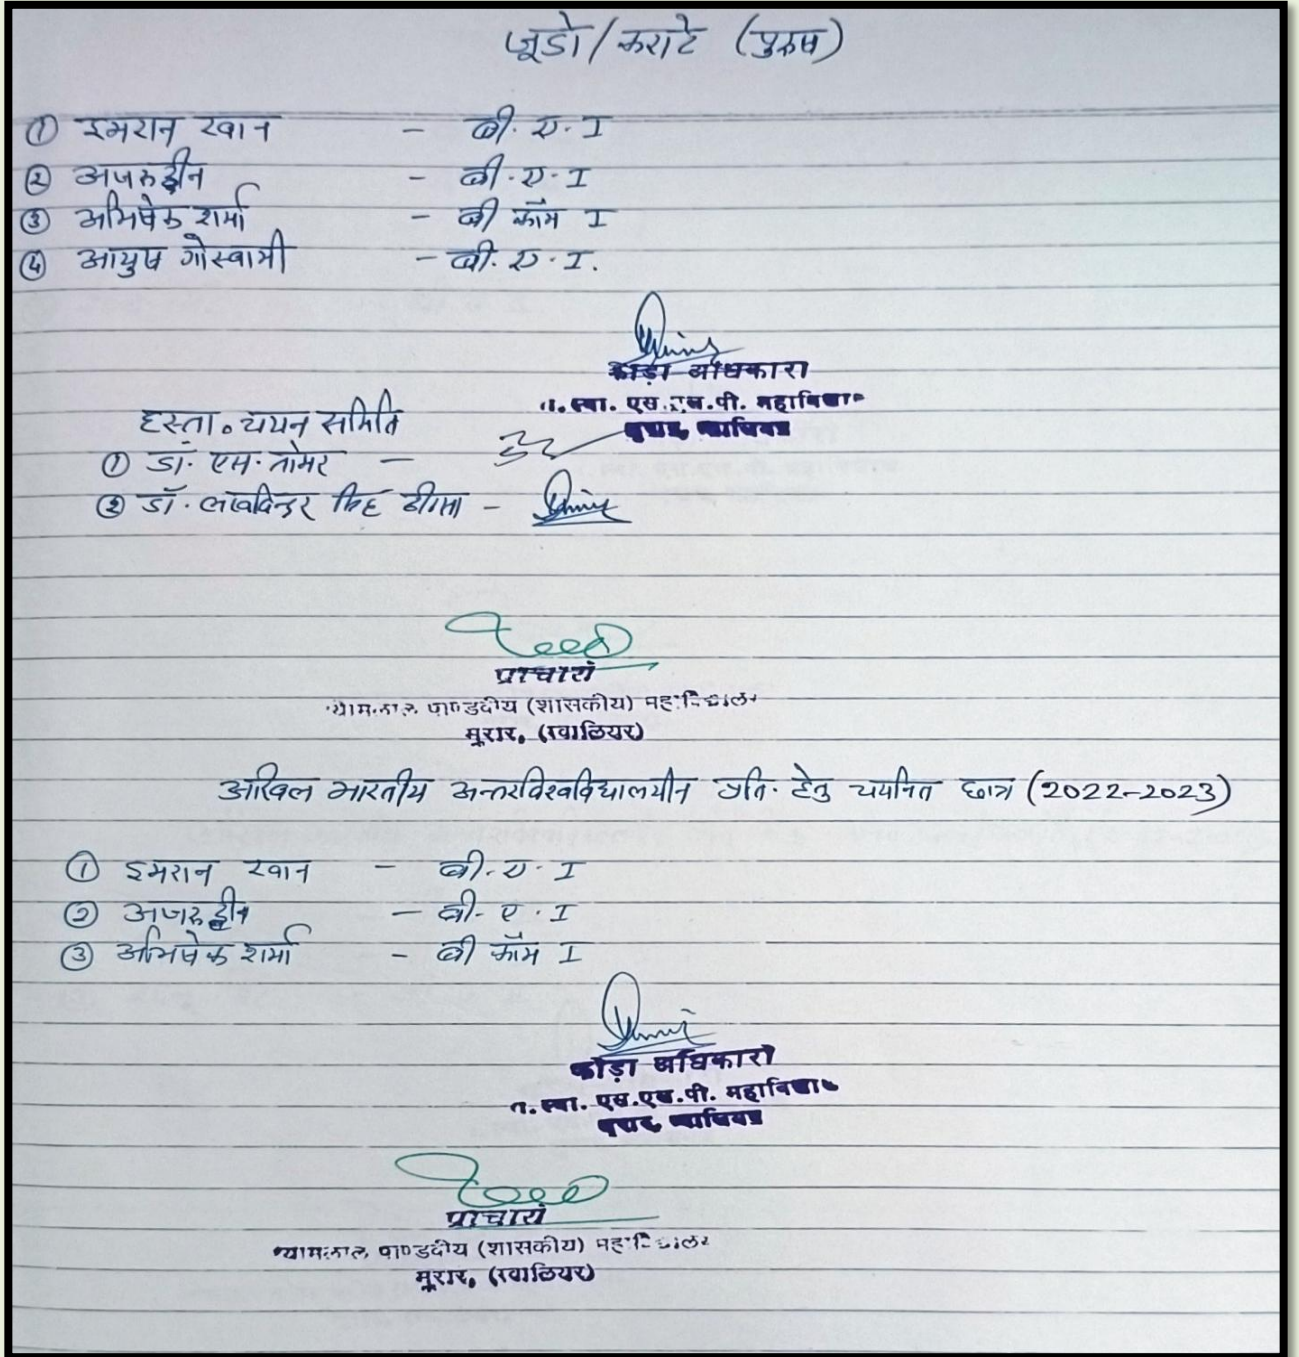 जूडो/कराटे (पुरुष)
① इमरान खान - बी. ए. I
② अजरुद्दीन - बी. ए. I
③ अभिषेक शर्मा - बी कॉम I
④ आयुष गोस्वामी - बी. ए. I.
क्रीड़ा अधिकारी
स्वा. एस.एल.पी. महाविद्या
मुरार, ग्वालियर
हस्ता. चयन समिति
① डॉ. एस. तोमर -
② डॉ. लखविन्दर सिंह -
प्राचार्य
श्यामलाल पाण्डवीय (शासकीय) महाविद्यालय
मुरार, (ग्वालियर)
अखिल भारतीय अन्तरविश्वविद्यालयीन प्रति. हेतु चयनित छात्र (2022-2023)
① इमरान खान - बी. ए. I
② अजरुद्दीन - बी. ए. I
③ अभिषेक शर्मा - बी कॉम I
क्रीड़ा अधिकारी
स्वा. एस.एल.पी. महाविद्या
मुरार, ग्वालियर
प्राचार्य
श्यामलाल पाण्डवीय (शासकीय) महाविद्यालय
मुरार, (ग्वालियर)